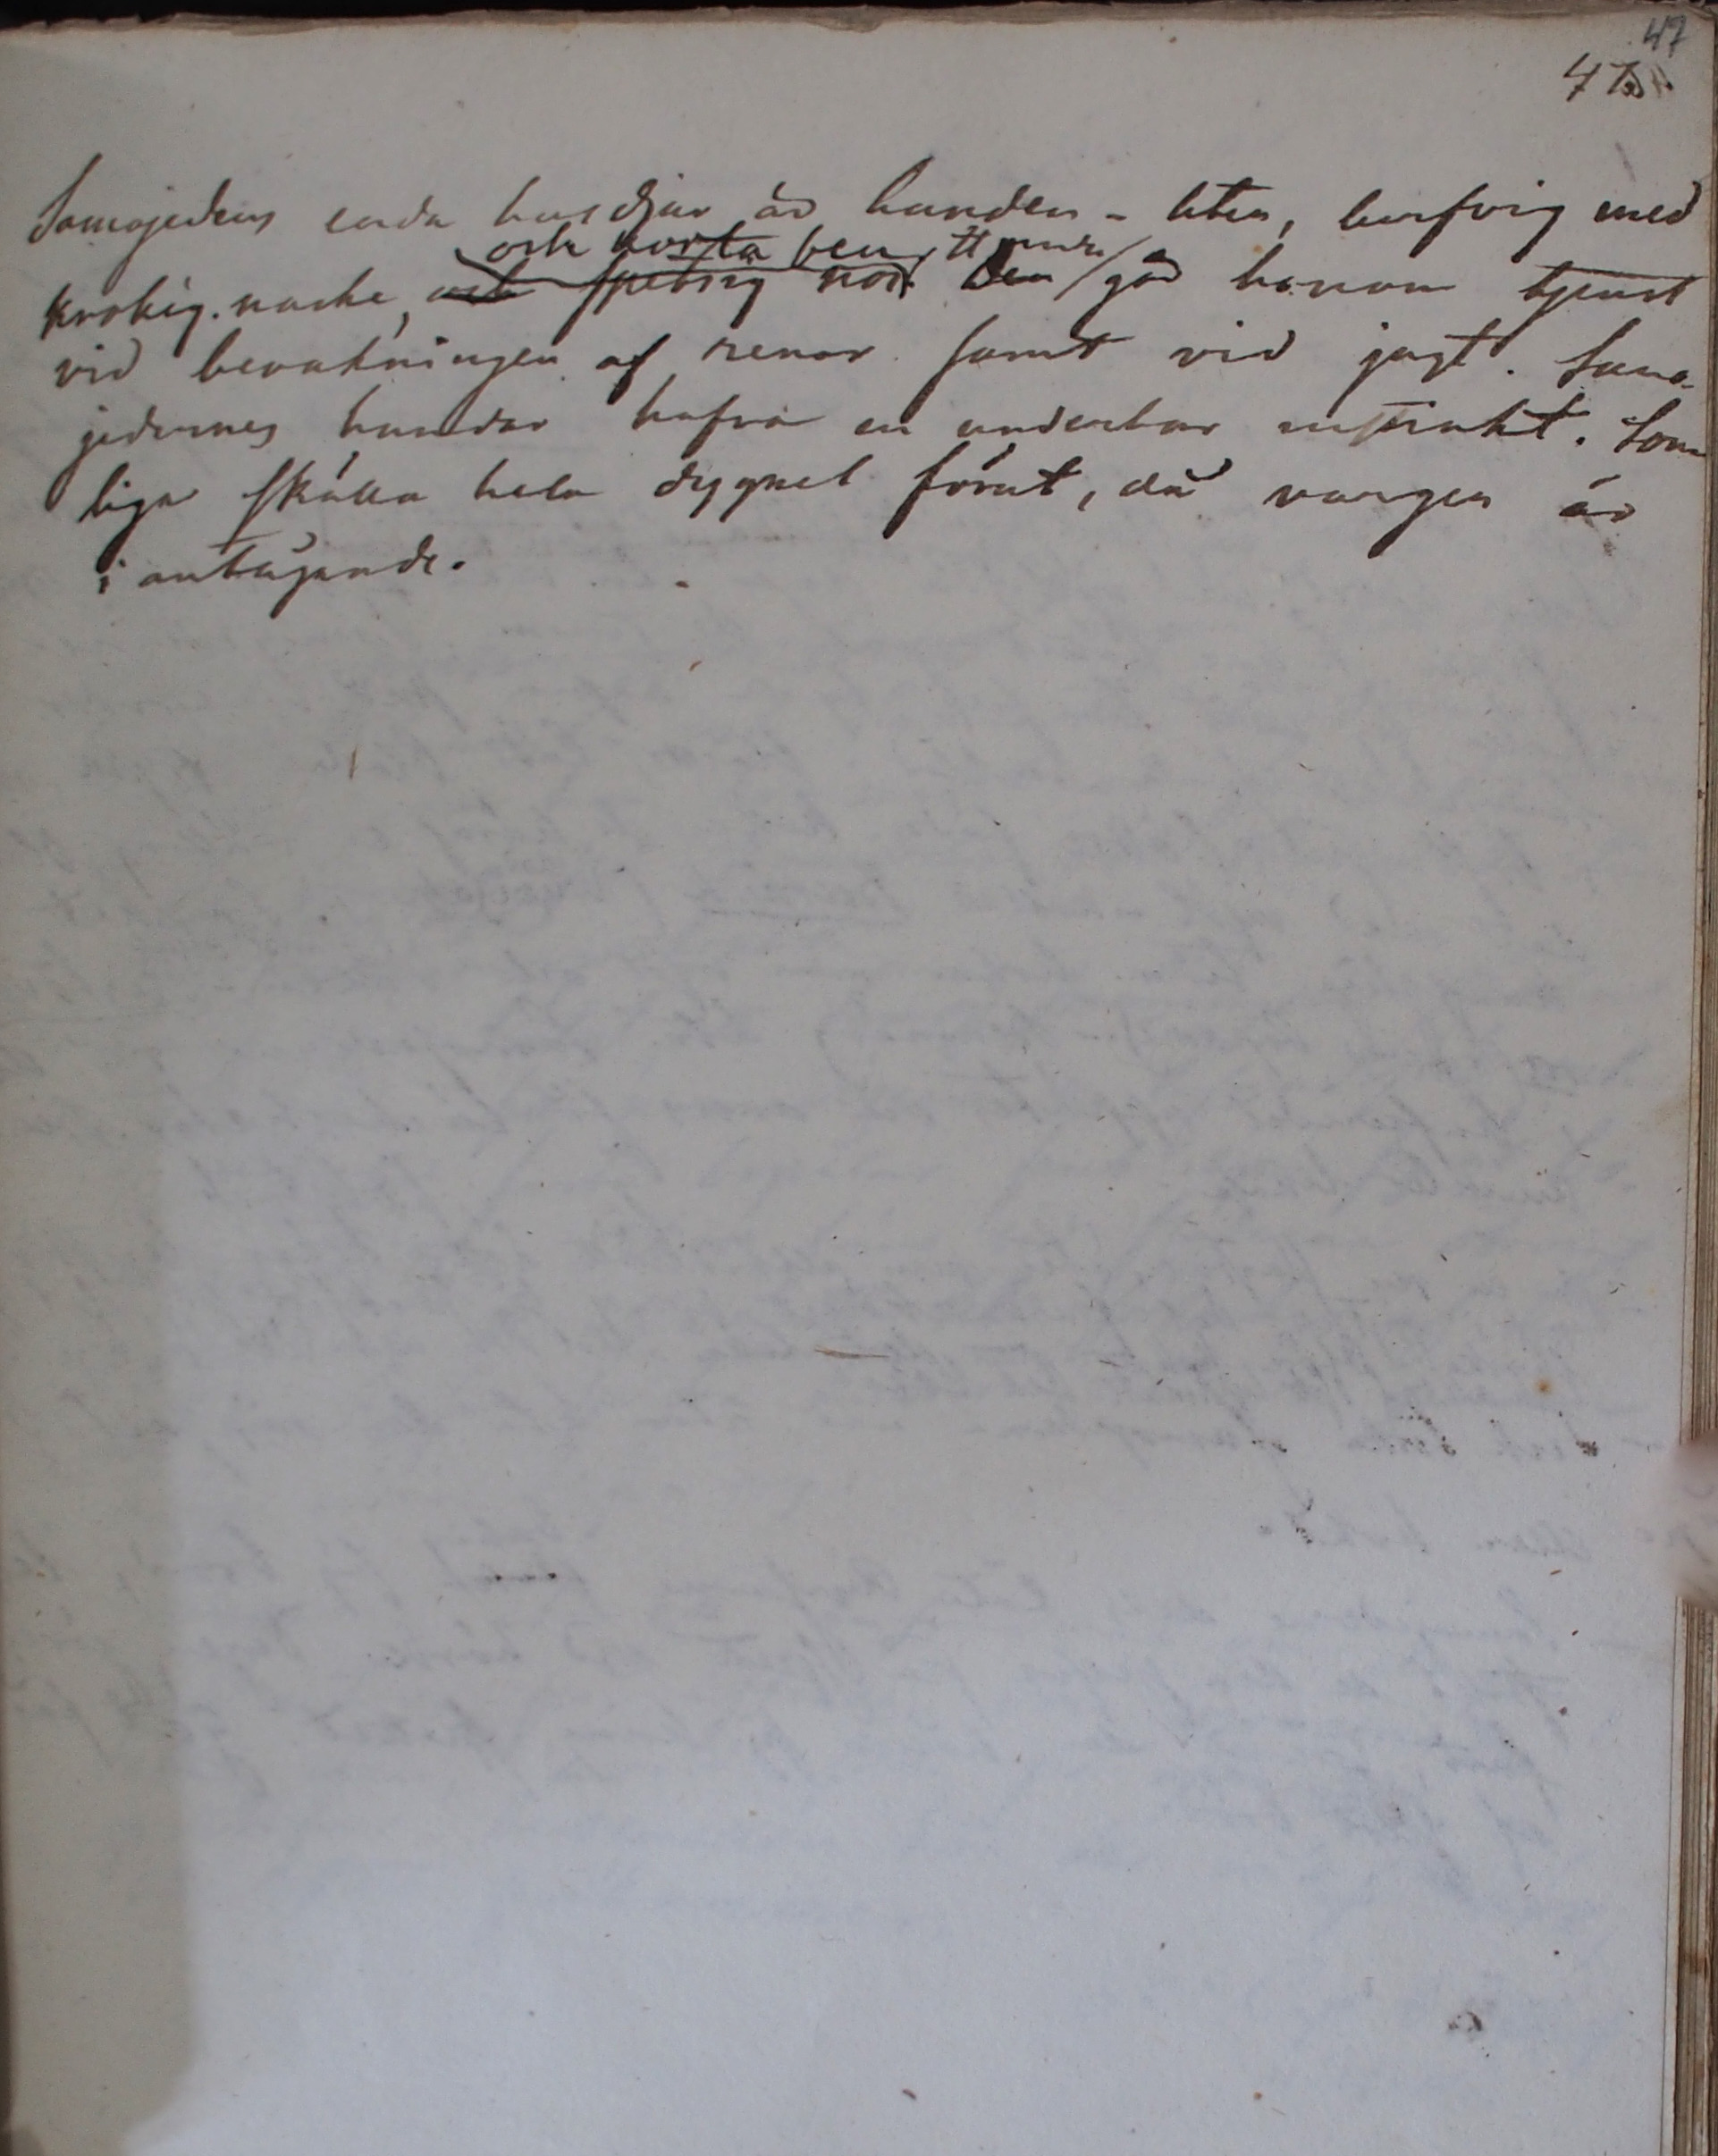 47
47
Samojedens enda husdjur är hunden - liten, lurfvig med
och korta ben,
krokig nacke, och spetsig nos. Den gör honom tjenst
vid bevakningen af renar samt vid jagt. Samo-
jedernes hundar hafva en underbar instinkt. Som-
liga skälla hela dygnet förut, då vargen är
i antågande.